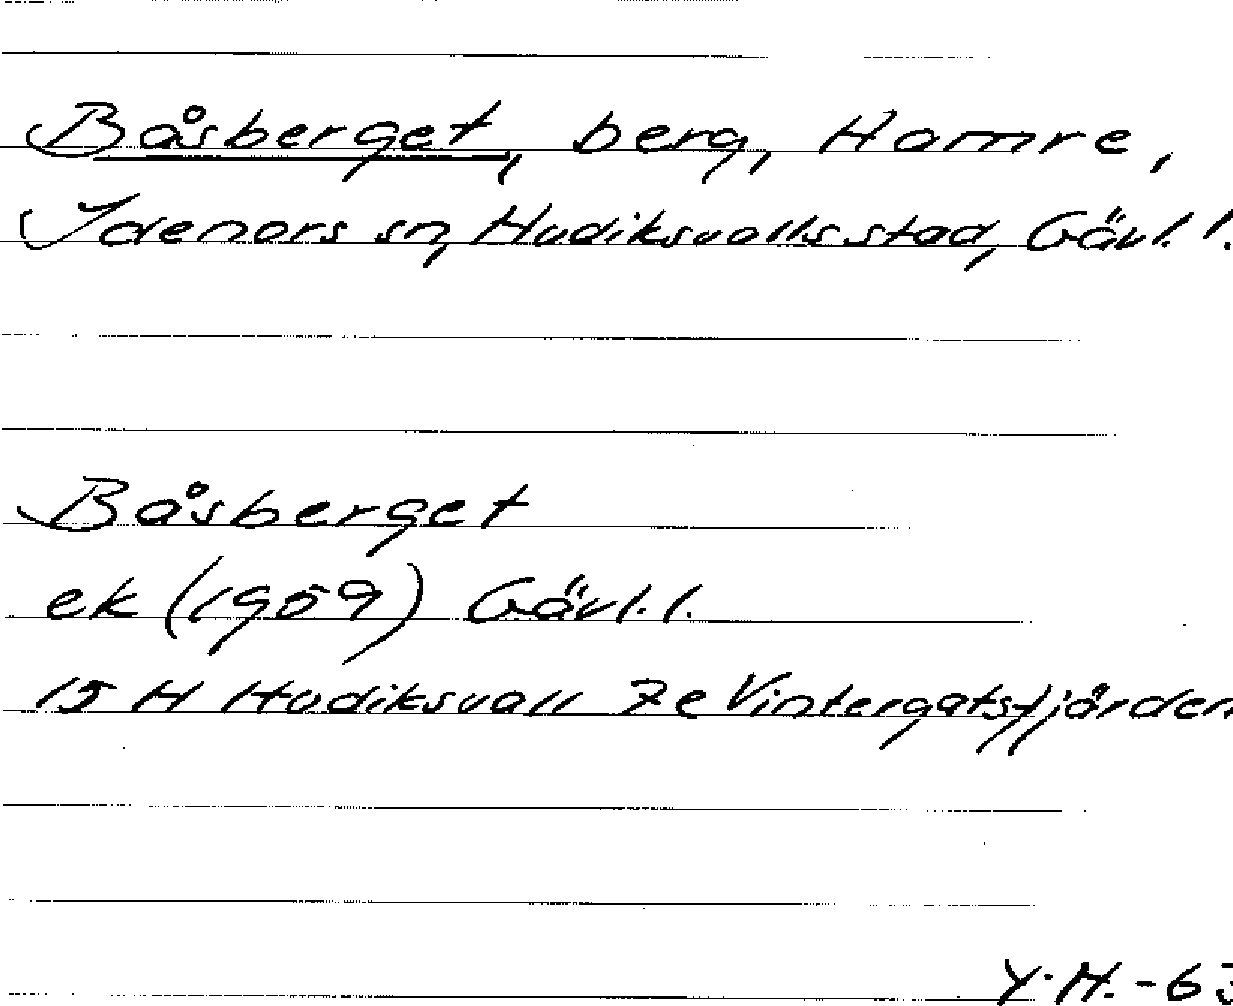 Båsberget, berg, Hamre,
Idenors sn, Hudiksvalls stad, Gävl. l.
Båsberget
ek (1959) Gävl. l.
15 H Hudiksvall 7e Vintergatsfjärden
Y.H. -63